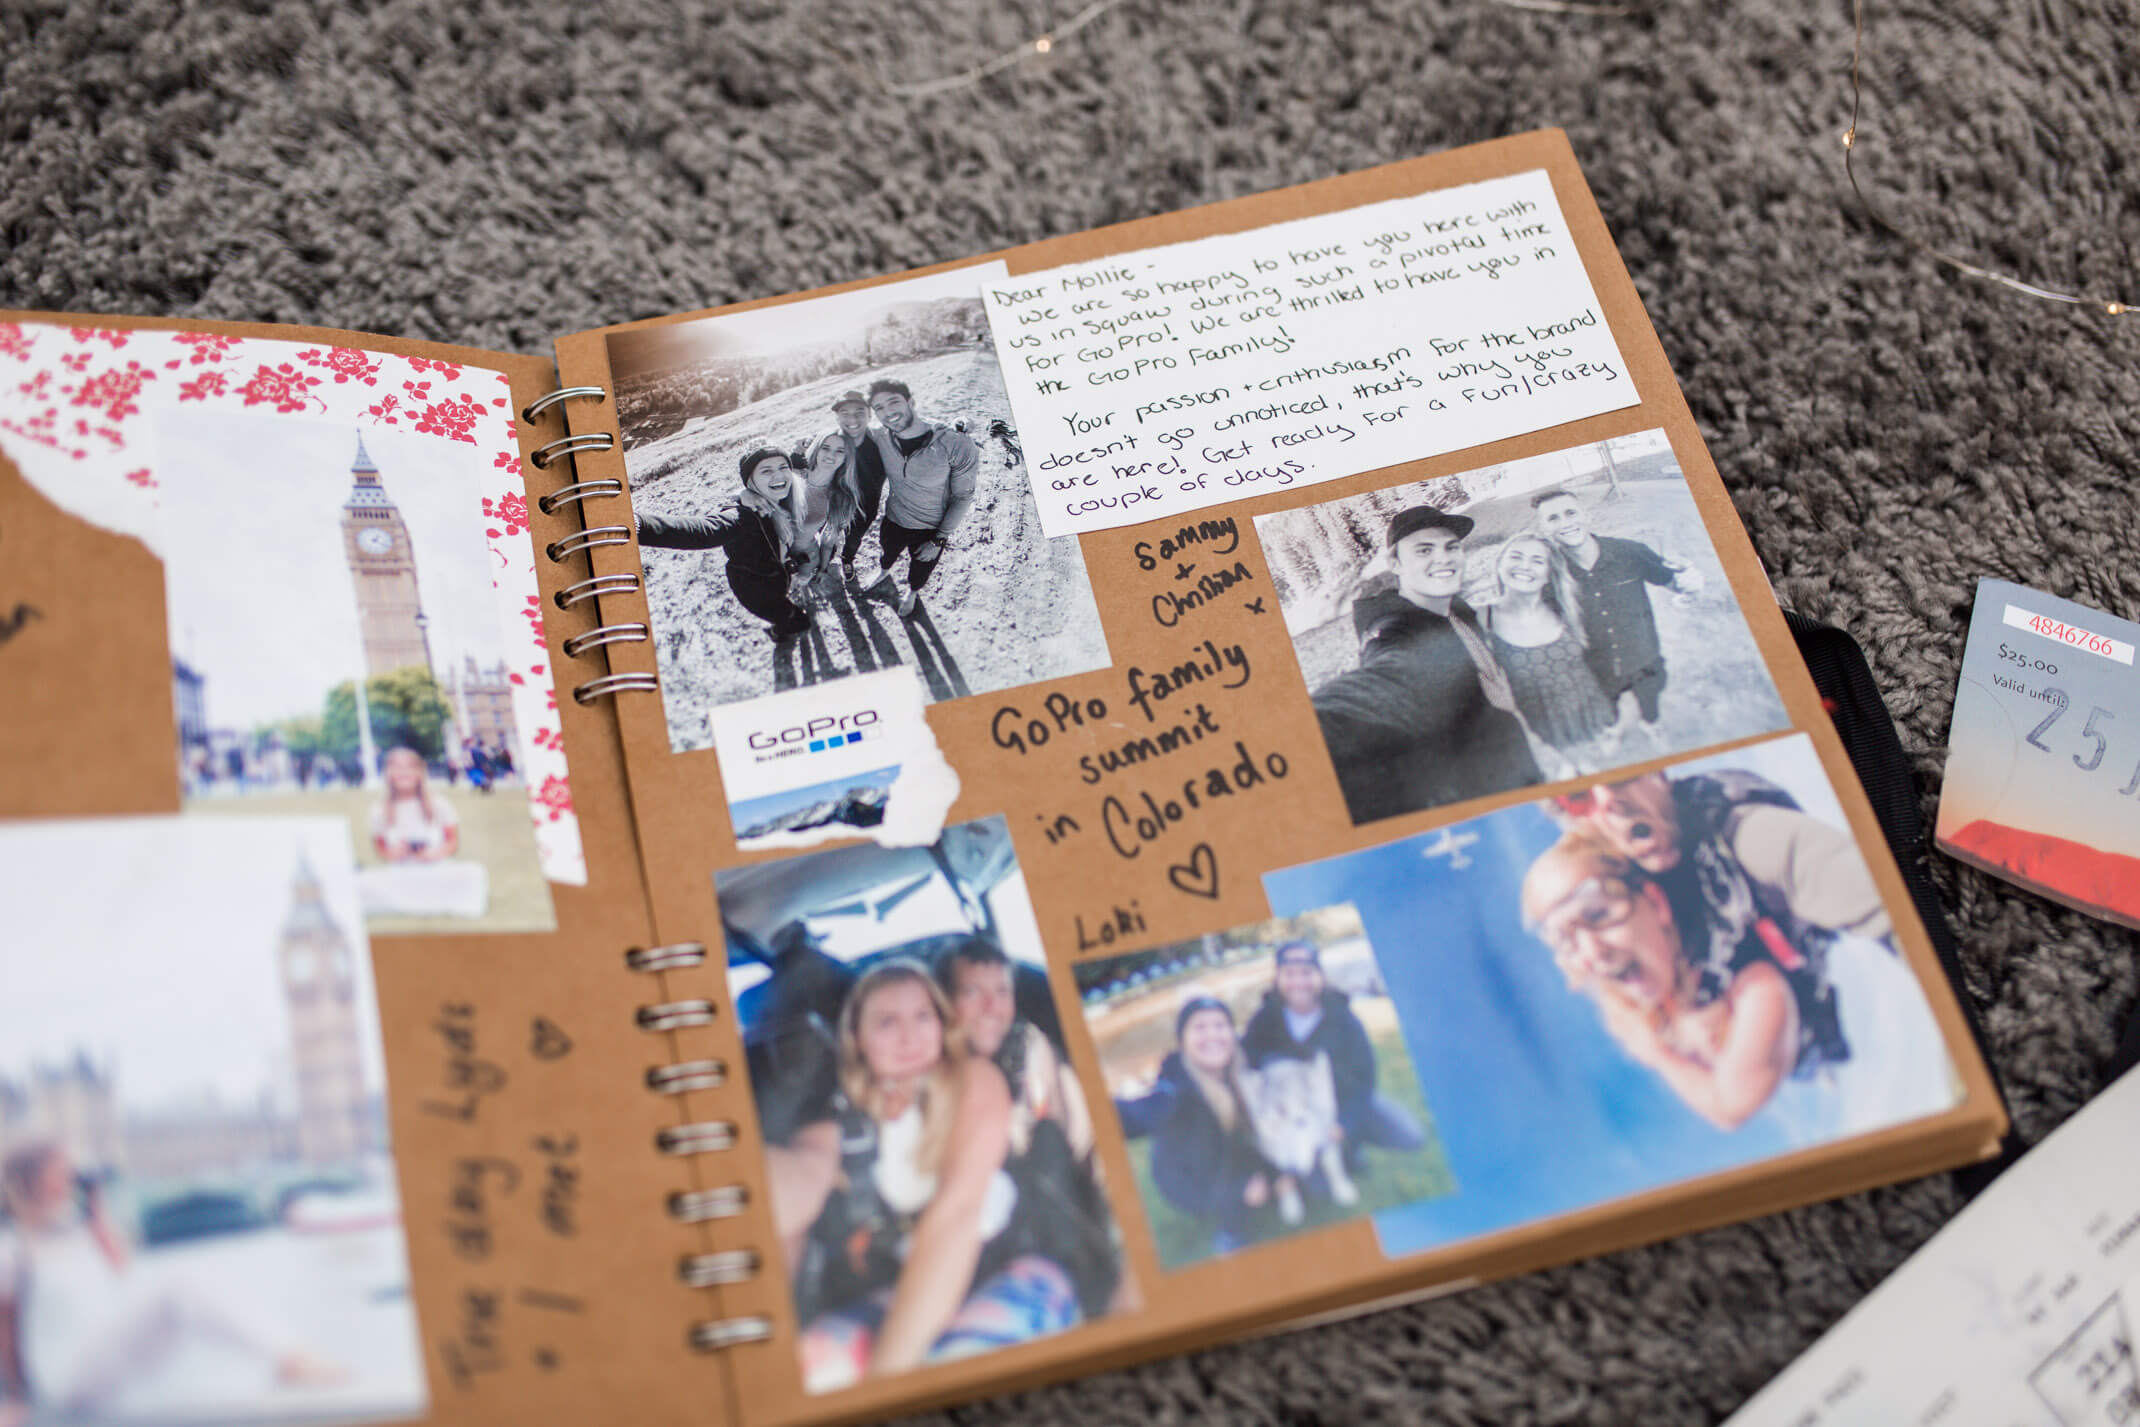 Dear Mollie -
We are so happy to have you here with
us in Squaw during such a pivotal time
for GoPro! We are thrilled to have you in
the GoPro Family!
Your passion + enthusiasm for the brand
doesn't go unnoticed, that's why you
are here! Get ready for a fun/crazy
couple of days.
Sammy
+
Christian
x
GoPro family
summit
in Colorado
Loki
GoPro
Be a HERO.
The day Lyds
& I met
4846766
$25.00
Valid until:
25 J